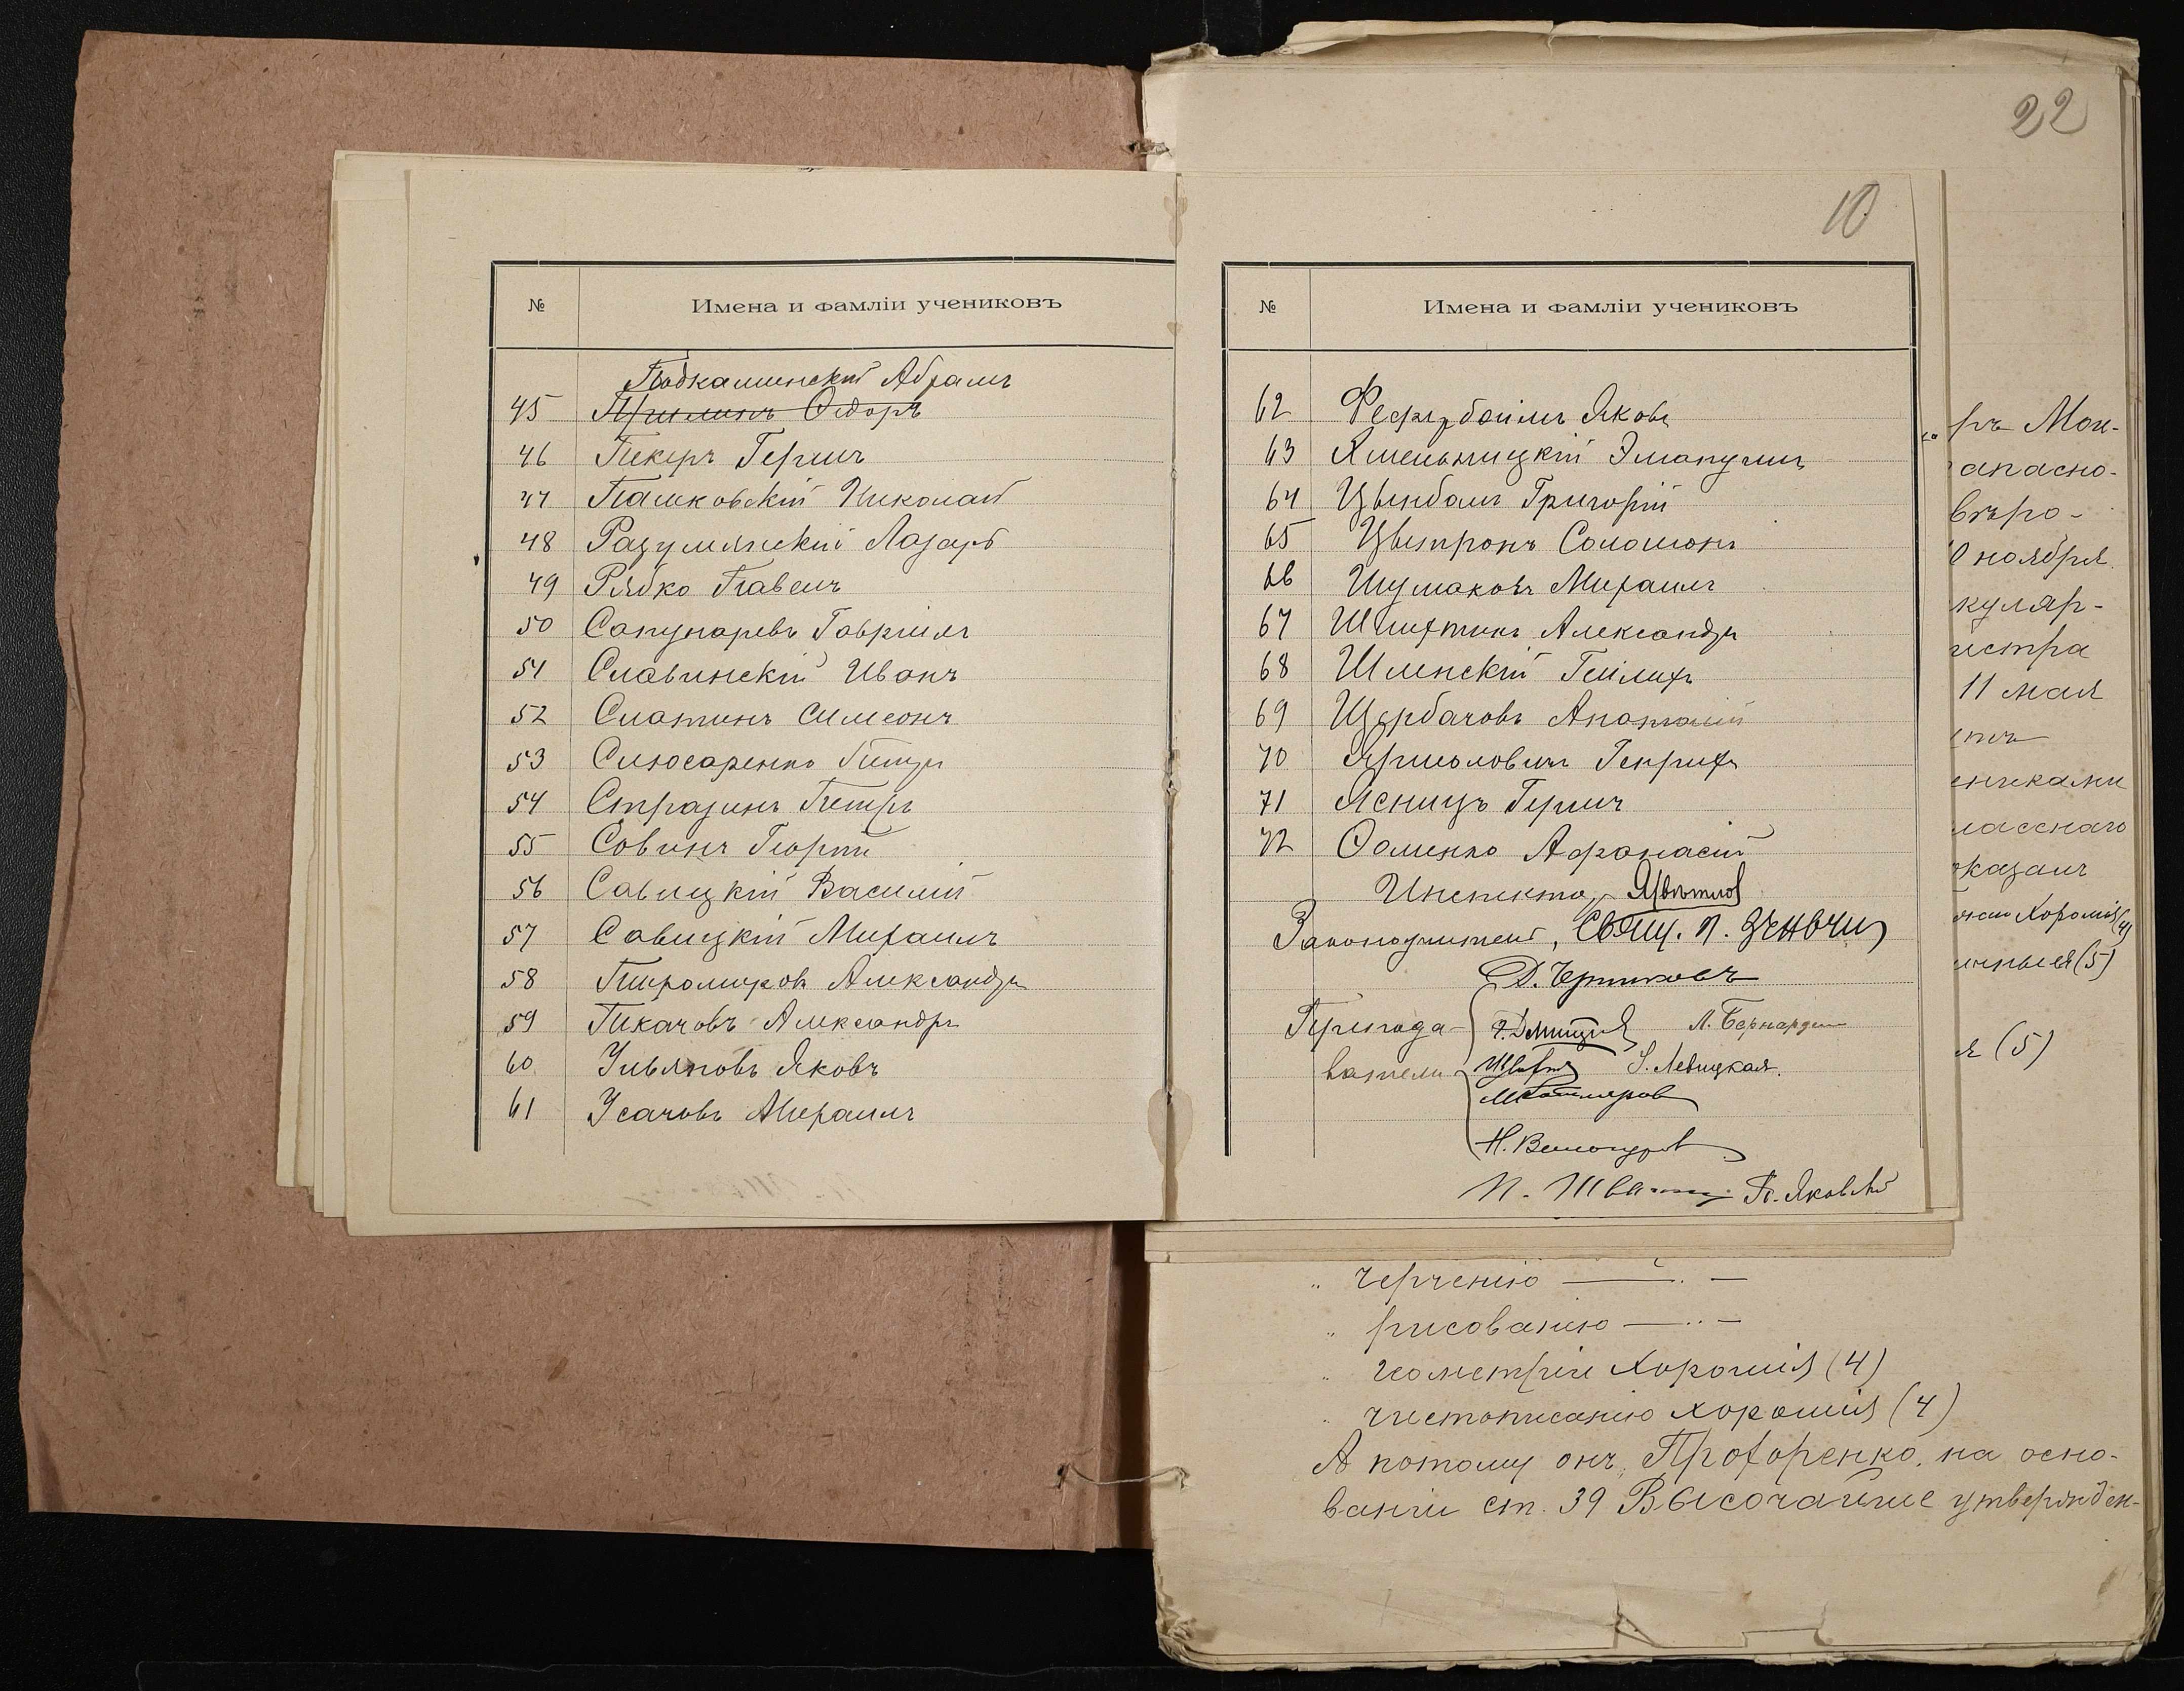 22
10
№ Имена и фамлiи учениковъ
Подкаминскій Абрамъ
45 Прилипъ Ѳедоръ
46 Пекеръ Гершъ
47 Пашковскій Николай
48 Разумянскій Лазарь
49 Рябко Павелъ
50 Сапунаревъ Гавріилъ
51 Славинскій Иванъ
52 Слатинъ Симеонъ
53 Слюсаренко Петръ
54 Стразинъ Петръ
55 Совинъ Георгій
56 Савицкій Василій
57 Савицкій Михаилъ
58 Тихомировъ Александръ
59 Ткачовъ Александръ
60 Ульяновъ Яковъ
61 Усачовъ Михаилъ
№ Имена и фамлiи учениковъ
62 Яковъ
63 Хмельницкій Эмануилъ
64 Цвинбалъ Григорій
65 Цвитронъ Соломонъ
66 Шумаковъ Михаилъ
67 Шлифтинъ Александръ
68 Шленскій Гейлихъ
69 Щербачовъ Анатолій
70 Ярмоловичъ Генрихъ
71 Ясницъ Гершъ
72 Ѳоменко Афанасій
Инспекторъ
Законоучитель, Свящ. П.
Д. Чертковъ
Препода- Л.
ватели З. Левицкая.
Н.
П. П. Яковлев
ръ Мон-
апасно-
въро-
0 ноября
куляр-
истра
11 мая
ениками
ласснаго
казалъ
Хорошія (4)
(5)
я (5)
" черченію — " —
" рисованію — " —
" геометріи Хорошія (4)
" чистописанію хорошія (4)
А потому онъ, Прохоренко, на осно-
ваніи ст. 39 Высочайше утвержден-